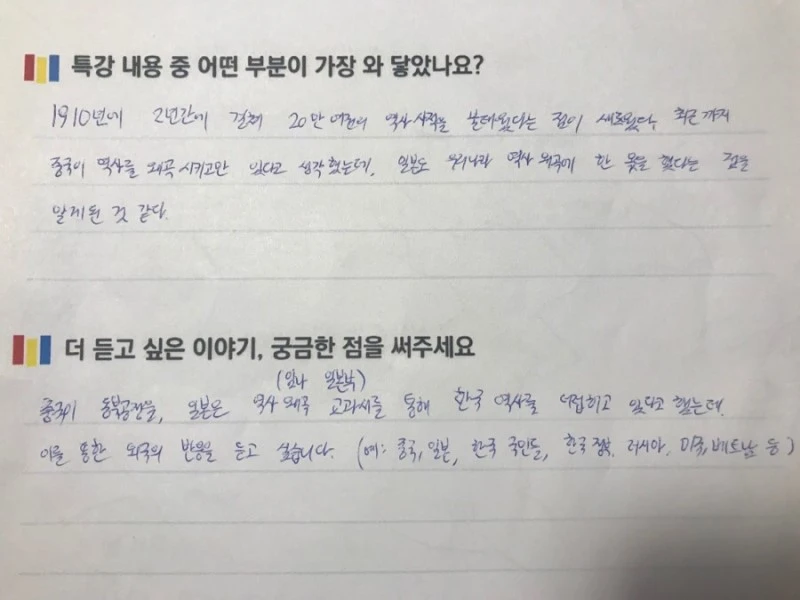 특강 내용 중 어떤 부분이 가장 와 닿았나요?
1910년에 2년간에 걸쳐 20만 여권의 역사 서적을 불태웠다는 점이 새로웠다. 최근까지
중국이 역사를 왜곡시키고만 있다고 생각했는데, 일본도 우리나라 역사 왜곡에 한 몫을 했다는 점을
알게된 것 같다.
더 듣고 싶은 이야기, 궁금한 점을 써주세요
(임나 일본부)
중국이 동북공정을, 일본은 역사왜곡 교과서를 통해 한국 역사를 뒤집히고 있다고 했는데,
이를 통한 외국의 반응을 듣고 싶습니다. (예: 중국, 일본, 한국 국민들, 한국 정부, 러시아, 미국, 베트남 등)